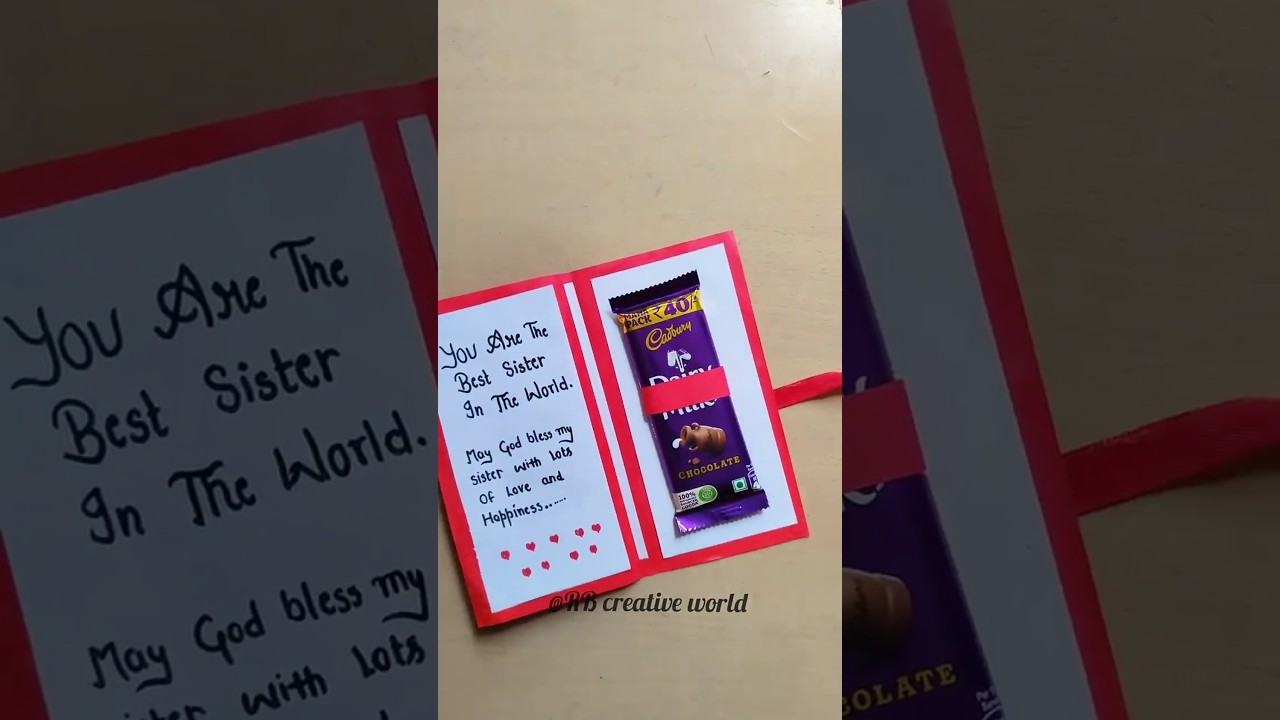 You Are The
Best Sister
In The World.
May God bless my
sister with lots
Of Love and
Happiness......
₹40/-
Cadbury
Dairy
Milk
CHOCOLATE
100%
COCOA
@RB creative world
You Are The
Best Sister
In The World.
May God bless my
with lots
OLATE